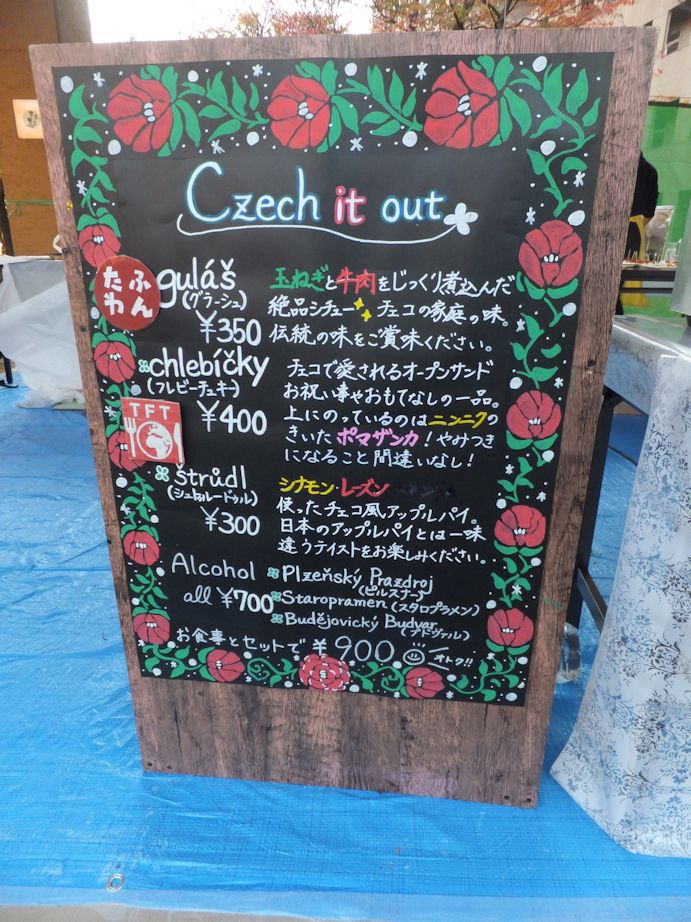 Czech it out
ふん
たわ
guláš
(グラーシュ)
¥350
玉ねぎと牛肉をじっくり煮込んだ
絶品シチュー チェコの家庭の味。
伝統の味をご賞味ください。
chlebíčky
(フレビーチュキー)
¥400
チェコで愛されるオープンサンド
お祝い事やおもてなしの一品。
上にのっているのはニンニクの
きいたポマザンカ!やみつき
になること間違いなし!
TFT
štrůdl
(シュトゥルードゥル)
¥300
シナモン・レーズン
使ったチェコ風アップルパイ。
日本のアップルパイとは一味
違うテイストをお楽しみください。
Alcohol
all ¥700
Plzeňský Prazdroj
(ピルスナー)
Staropramen (スタロプラメン)
Budějovický Budvar
(ブドヴァル)
お食事とセットで ¥900
オトク!!